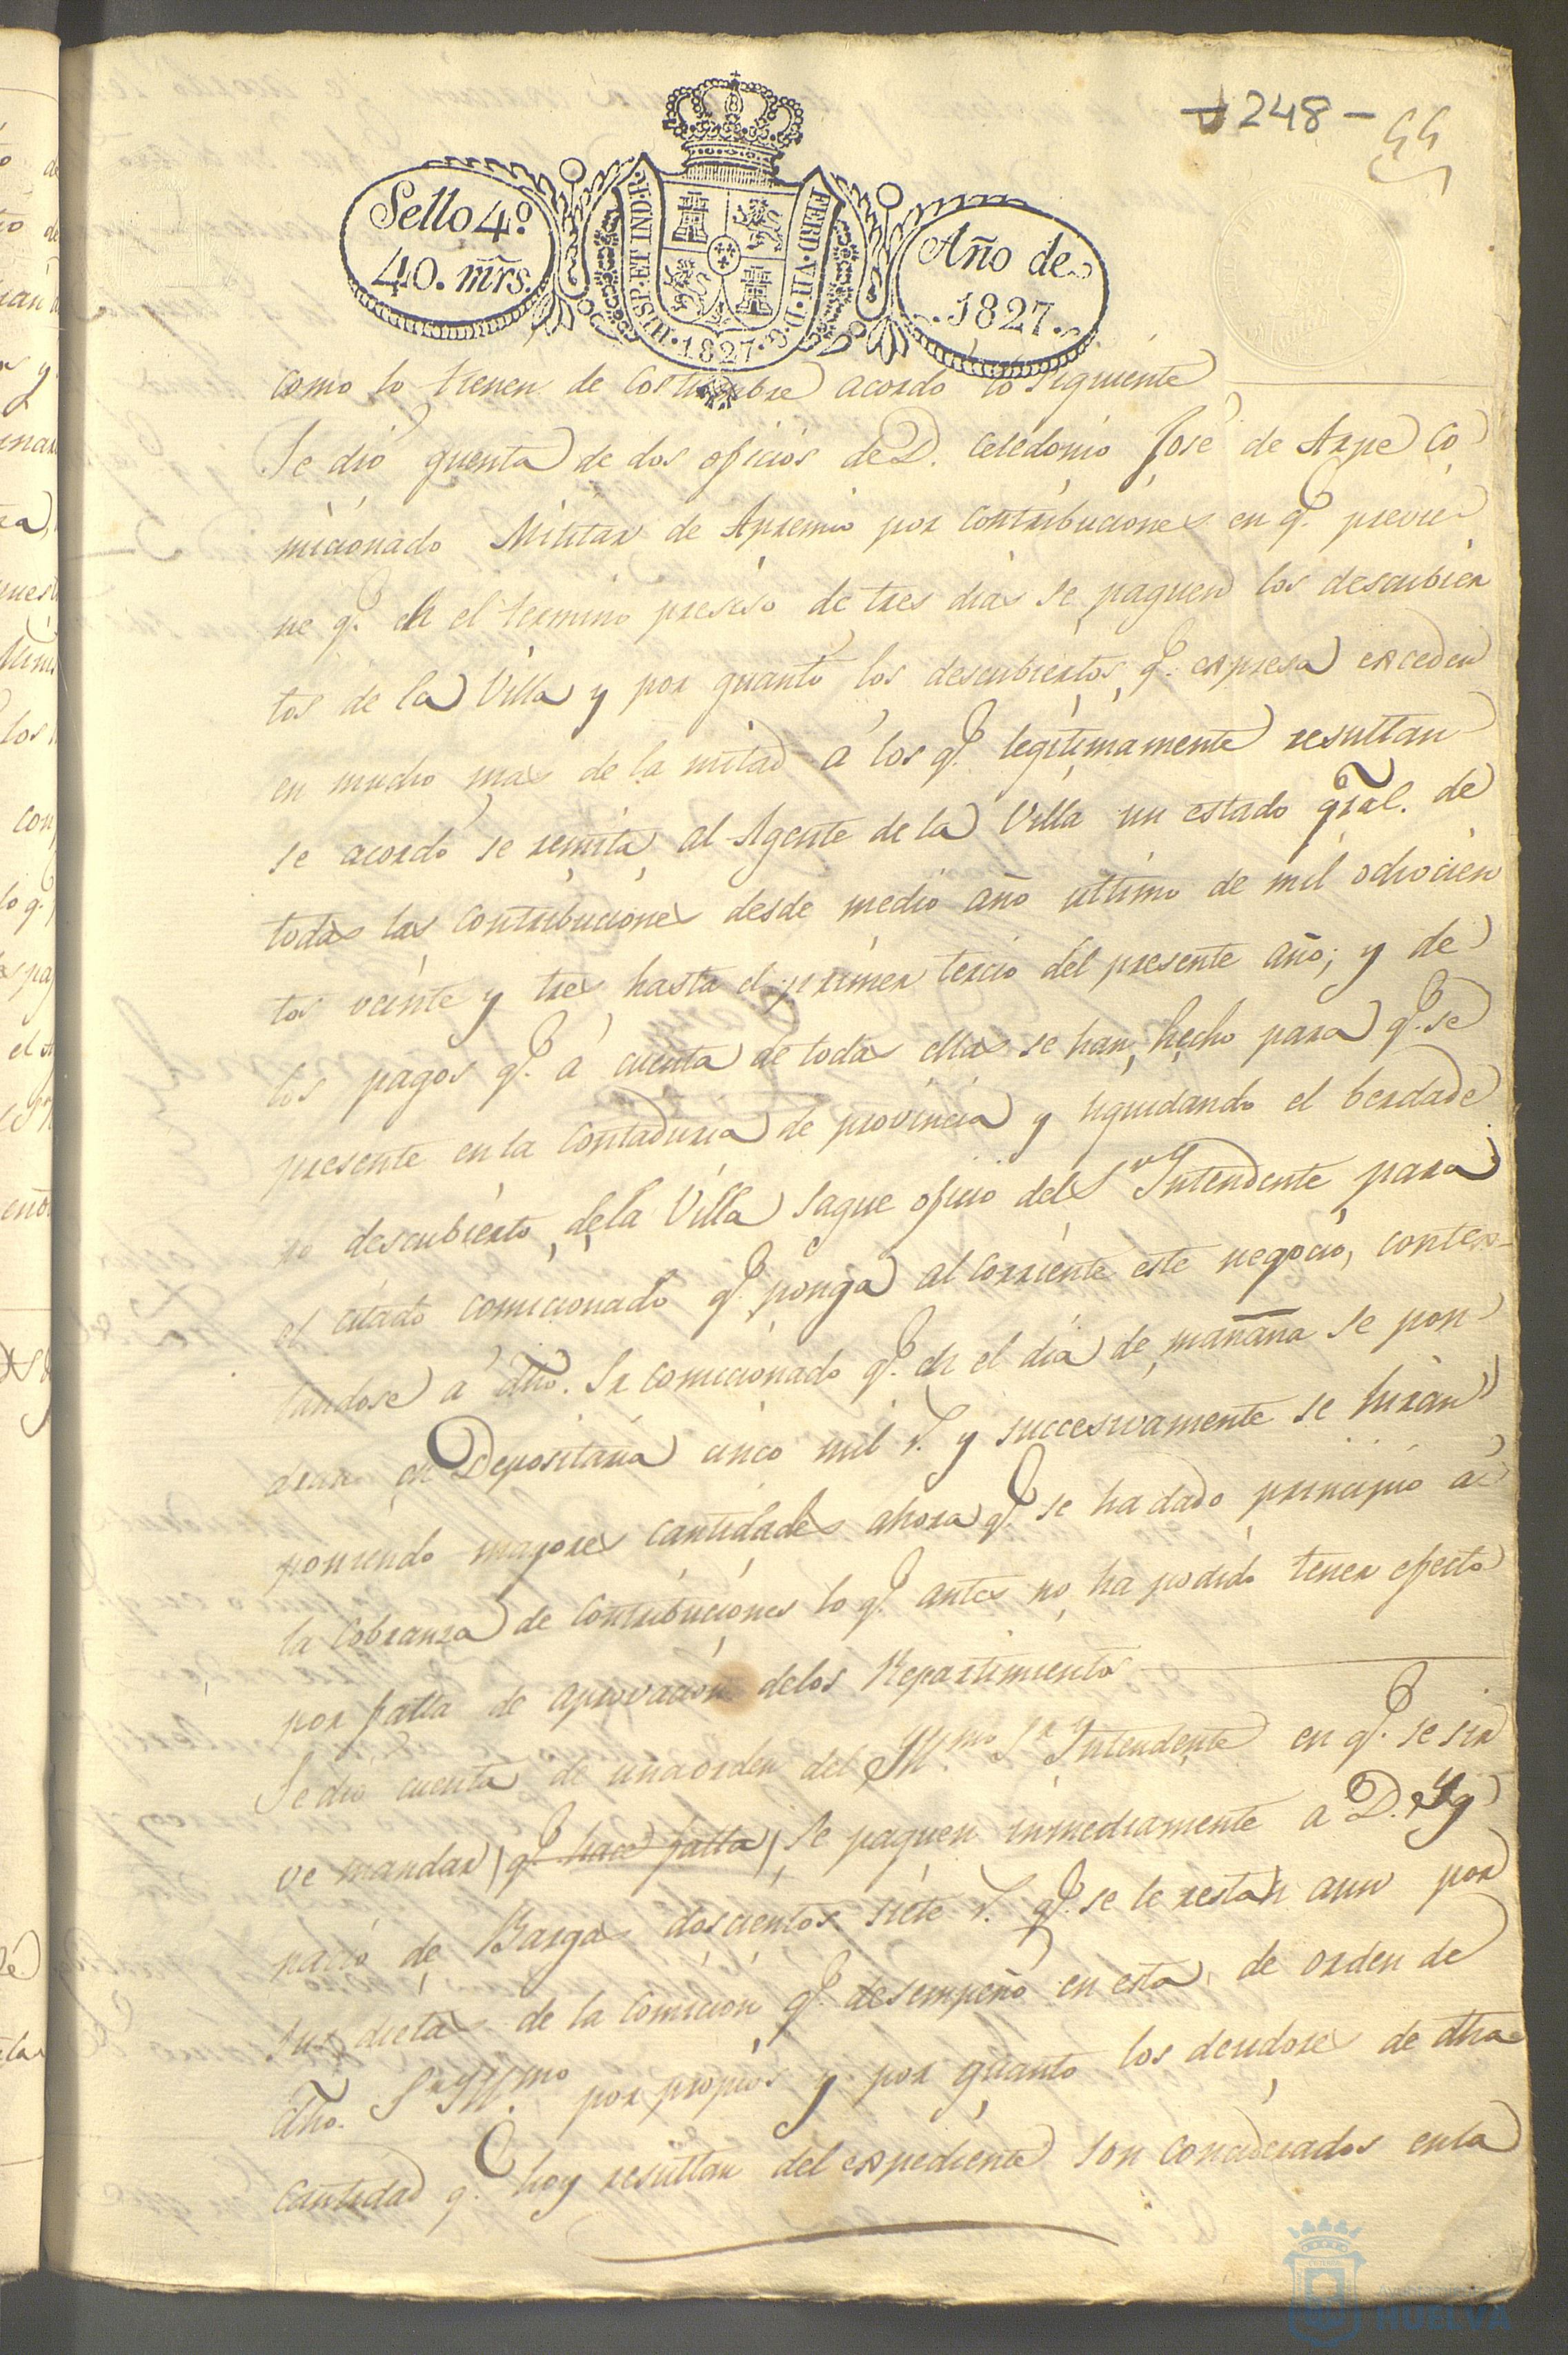 248 - 44
Sello 4º
40. mrs.
HISP·ET IND·R·
FERD·VII·D·G·
·1827·
Año de
1827.
como lo tienen de Costumbre acordó lo Siguiente
Se dio quenta de dos oficios de D. Celedonio José de Arpe Co
micionado Militar de Apremio por contribuciones en q.e previe
ne q.e en el termino presiso de tres dias se paguen los descubier
tos de la Villa y por quanto los descubiertos q.e expresa exceden
en mucho mas de la mitad á los q.e legitimamente resultan
se acordó se remita al Agente de la Villa un estado gral. de
todas las contribuciones desde medio año ultimo de mil ochocien
tos veinte y tres hasta el primer tercio del presente año; y de
los pagos q.e á cuenta de todas ellas se han hecho para q.e se
presente en la Contaduria de provincia y liquidando el berdade
ro descubierto de la Villa saque oficio del Sor Intendente para
el citado comicionado q.e ponga al Corriente este negocio, contes-
tandose á dho. Sr comicionado q.e en el dia de mañana se pon
dran en Depositaria cinco mil r. y succesivamente se hirán
poniendo mayores cantidades ahora q.e se ha dado principio á
la Cobranza de Contribuciones lo q.e antes no ha podido tener efecto
por falta de aprovacion de los Repartimientos
Se dio cuenta de una orden del Yll.mo Sr Yntendente en q.e se sir
ve mandar q.e hace falta se paguen inmediamente a D. Yg
nacio de Bargas doscientos siete r. q.e se le restan aun por
sus dietas de la Comicion q.e desempeñó en esta de orden de
dho. Sr Yll.mo por propios y por quanto los deudores de dha
Cantidad q.e hoy resultan del expediente son conciderados en la
HUELVA